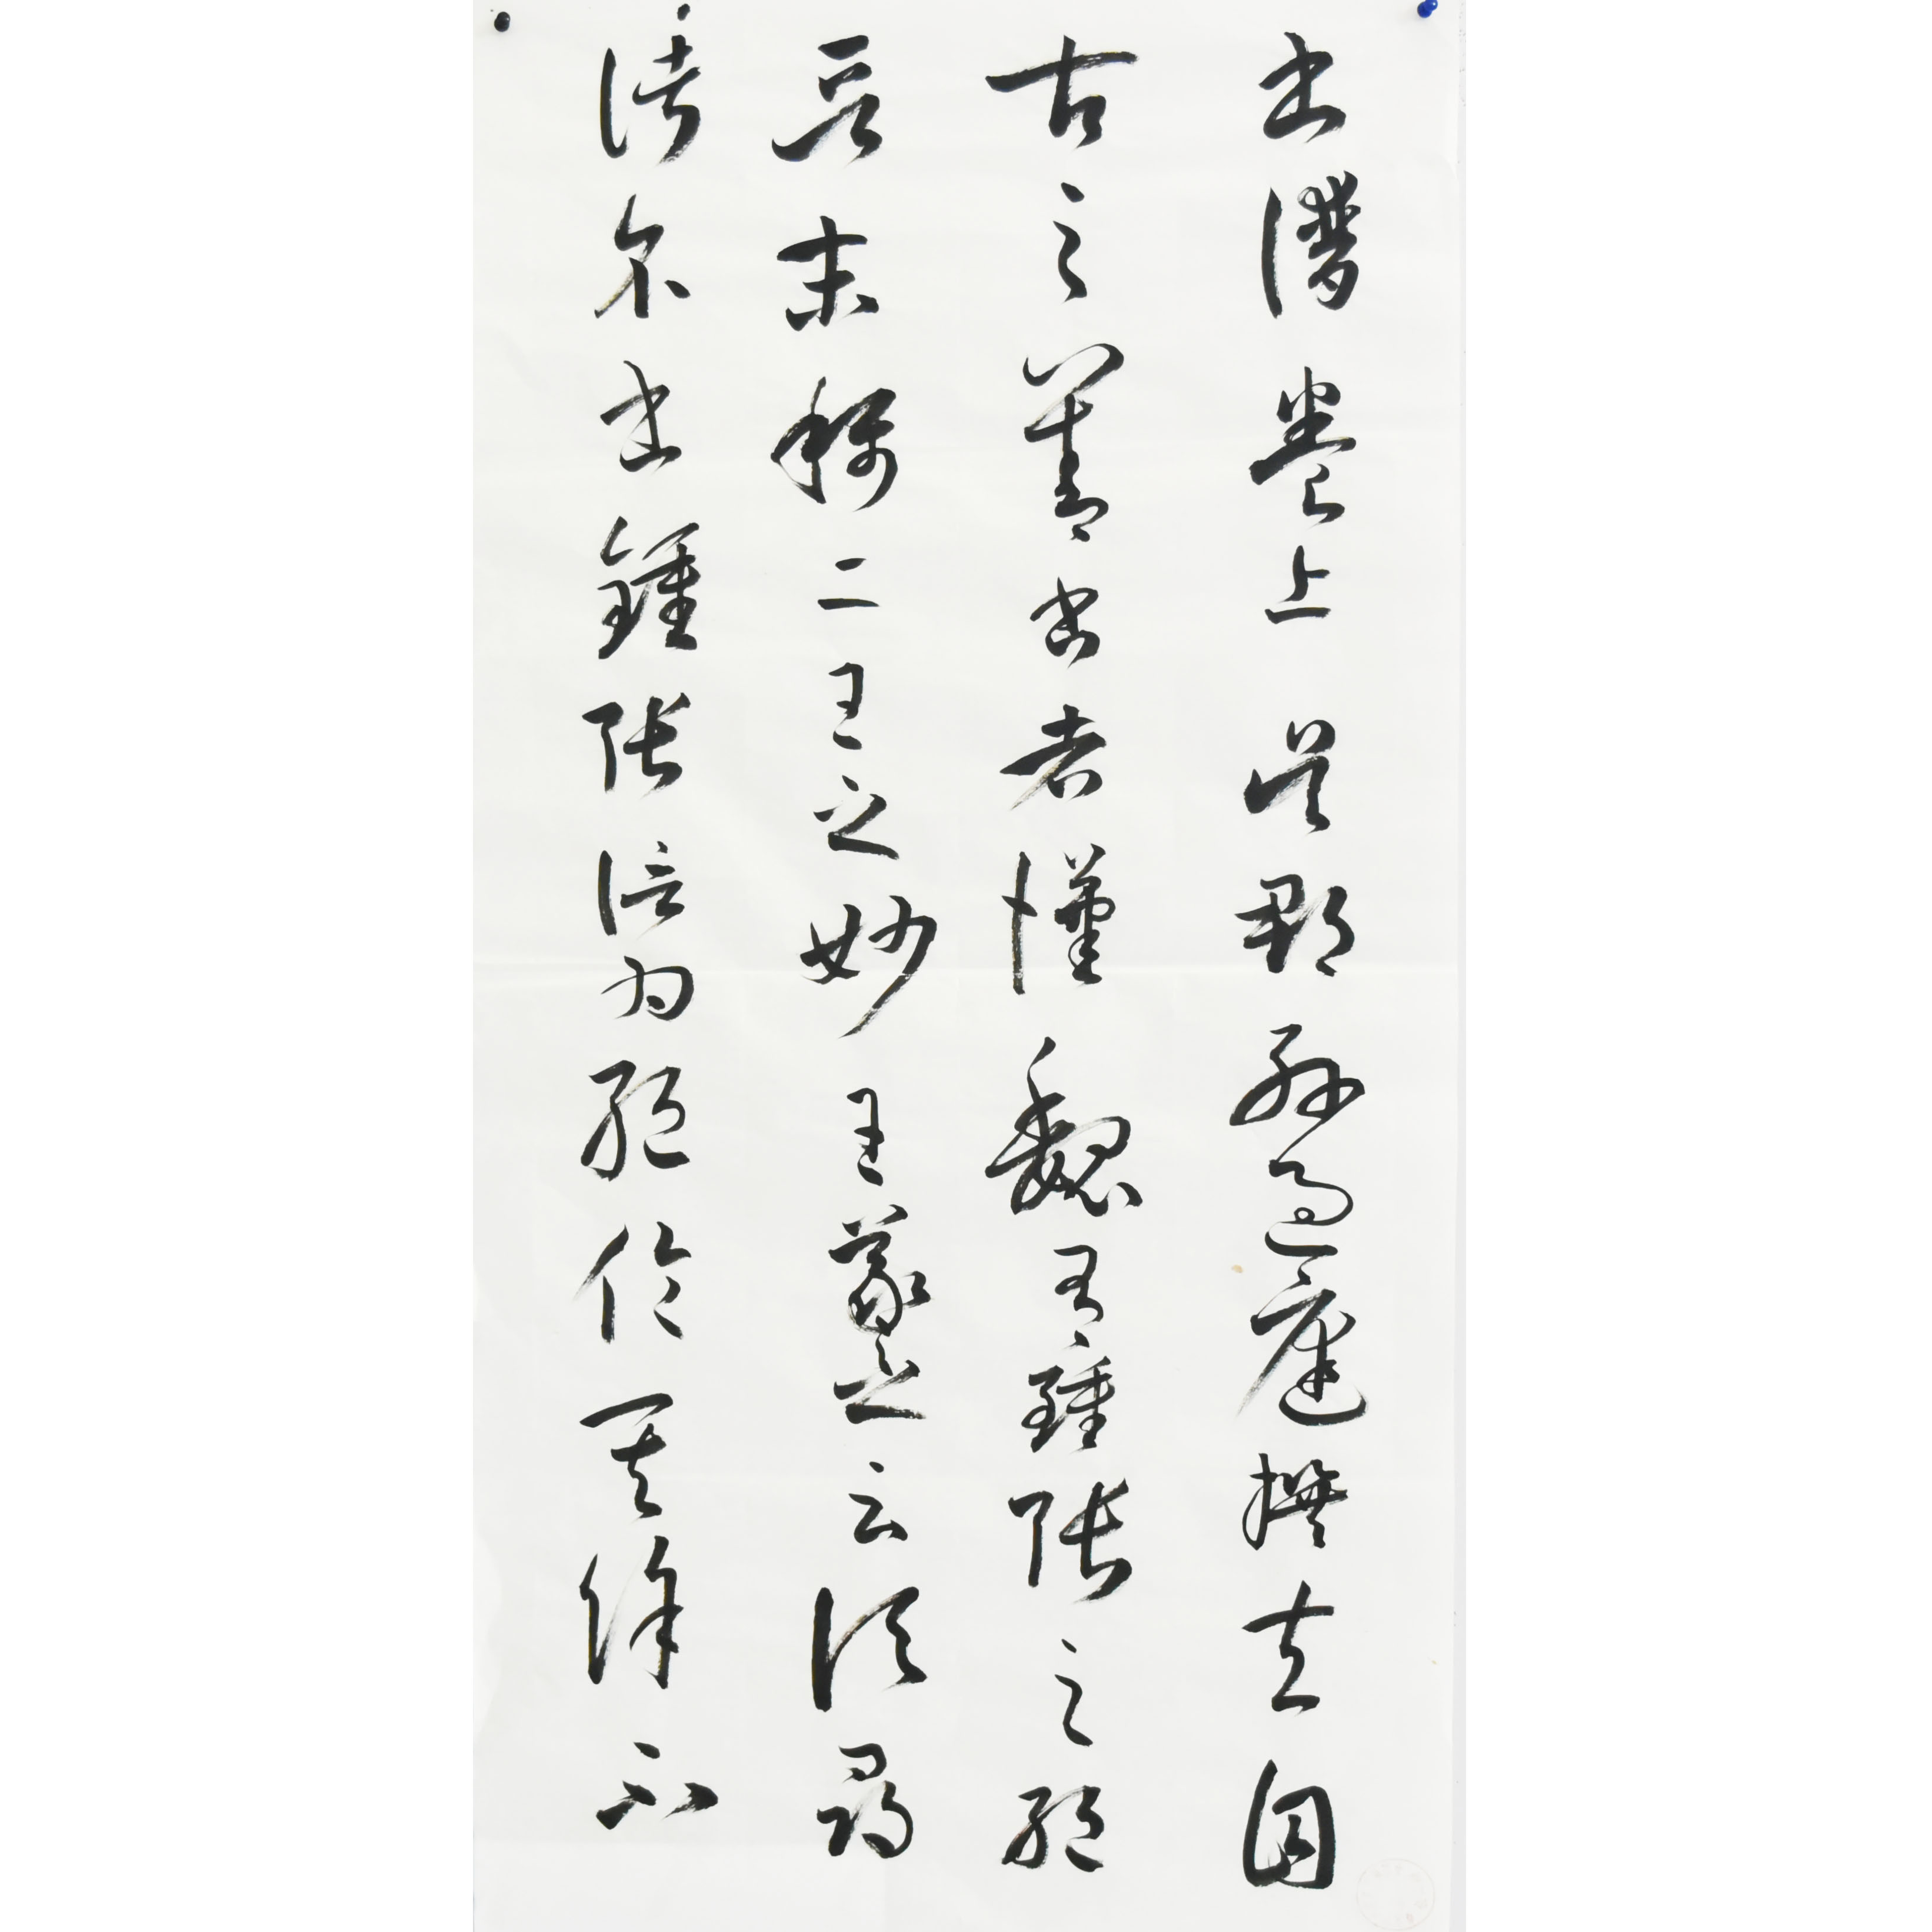 書譜卷上吳郡孫過庭撰夫自
古之善書者漢魏有鍾張之絕
晉末稱二王之妙王羲之云頃尋
諸名書鍾張信為絕倫其餘不